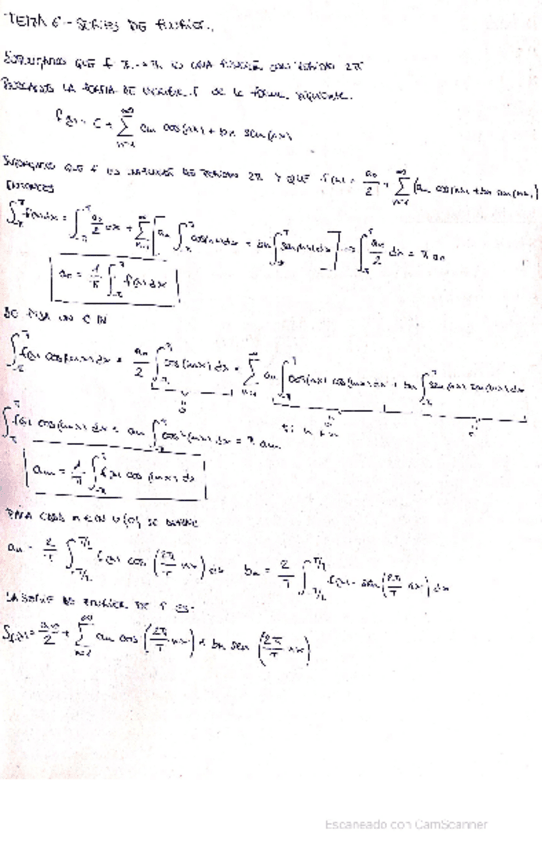 TEMA 6 - SERIES DE FOURIER.
SUPONGAMOS QUE f: ℝ → ℝ ES UNA FUNCIÓN CON PERIODO 2π
BUSCAMOS LA FORMA DE ESCRIBIR f DE LA FORMA SIGUIENTE.
f(x) = C + ∑_{n=1}^{∞} an cos(nx) + bn sen(nx)
SUPONGAMOS QUE f ES DE PERIODO 2π Y QUE f(x) = a0/2 + ∑_{n=1}^{∞} (an cos(nx) + bn sen(nx))
ENTONCES
∫_{-π}^{π} f(x) dx = ∫_{-π}^{π} a0/2 dx + ∑_{n=1}^{∞} [an ∫_{-π}^{π} cos(nx) dx + bn ∫_{-π}^{π} sen(nx) dx] = ∫_{-π}^{π} a0/2 dx = π a0
a0 = 1/π ∫_{-π}^{π} f(x) dx
SE FIJA m ∈ ℕ
∫_{-π}^{π} f(x) cos(mx) dx = a0/2 ∫_{-π}^{π} cos(mx) dx + ∑_{n=1}^{∞} an ∫_{-π}^{π} cos(nx) cos(mx) dx + bn ∫_{-π}^{π} sen(nx) cos(mx) dx
0 0 si n ≠ m 0
∫_{-π}^{π} f(x) cos(mx) dx = am ∫_{-π}^{π} cos²(mx) dx = π am
am = 1/π ∫_{-π}^{π} f(x) cos(mx) dx
PARA CADA n ∈ ℕ ∪ {0} SE DEFINE
an = 2/T ∫_{-T/2}^{T/2} f(x) cos(2π/T nx) dx bn = 2/T ∫_{-T/2}^{T/2} f(x) · sen(2π/T nx) dx
LA SERIE DE FOURIER DE f ES-
Sf(x) = a0/2 + ∑_{n=1}^{∞} an cos(2π/T nx) + bn sen(2π/T nx)
Escaneado con CamScanner